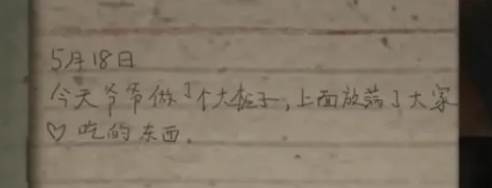 5月18日
今天爷爷做了个大柜子,上面放满了大家
♡吃的东西.